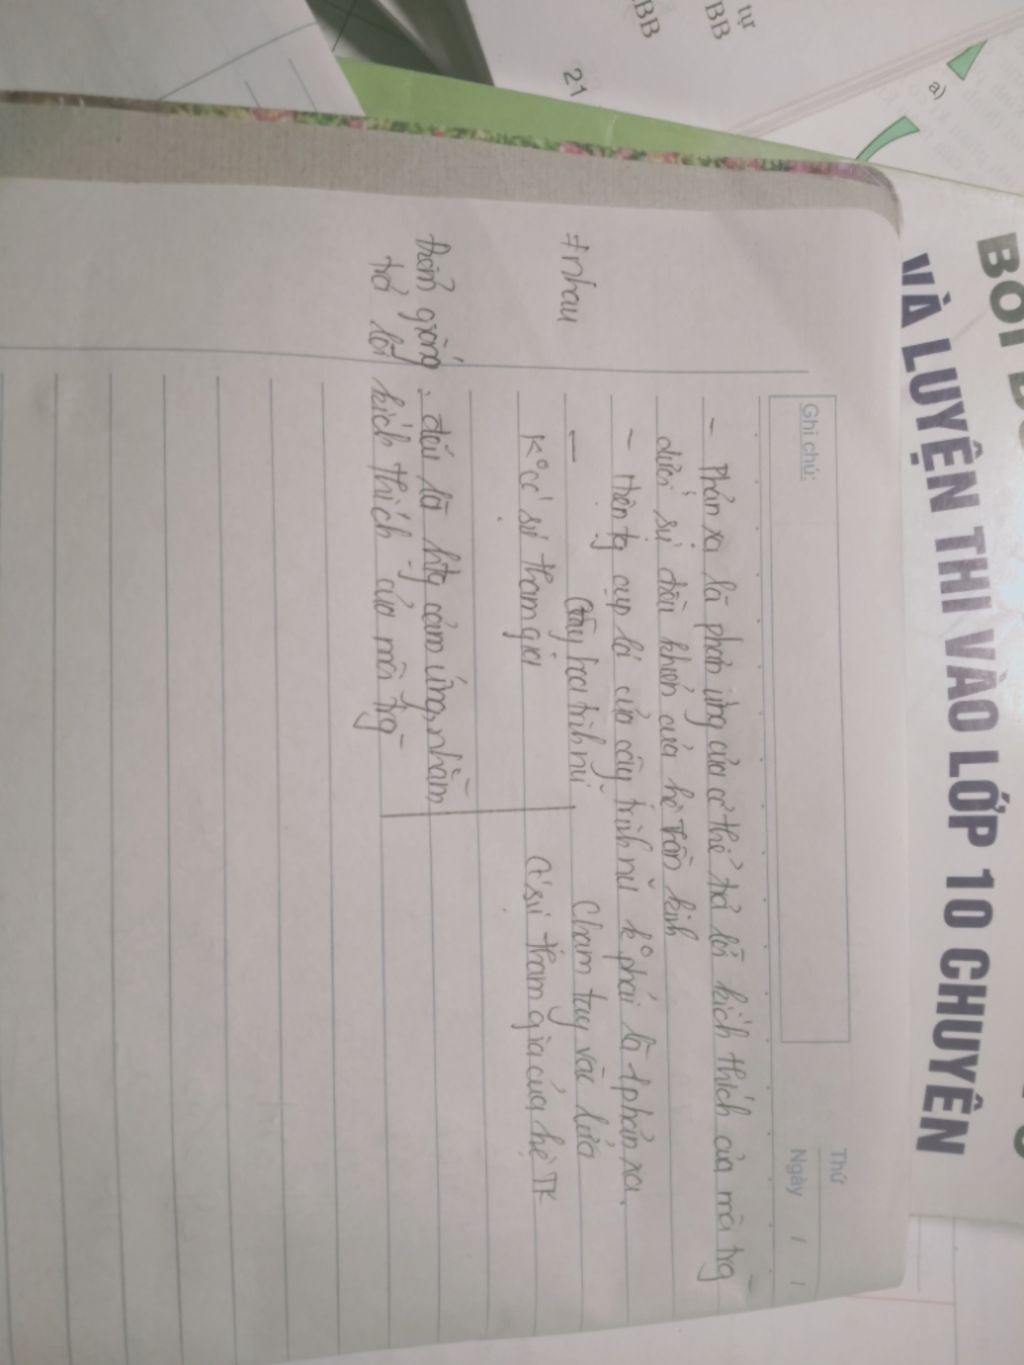 BỒI D
VÀ LUYỆN THI VÀO LỚP 10 CHUYÊN
tự
BB
BB
a)
21
Thứ
Ngày / /
Ghi chú:
- Phản xạ là phản ứng của cơ thể trả lời kích thích của môi trg
dưới sự điều khiển của hệ thần kinh
- Hiện tg cụp lá của cây trinh nữ k° phải là 1 phản xạ.
≠ nhau
- Cây hoa trinh nữ Chạm tay vào lửa
K° có sự tham gia Có sự tham gia của hệ TK
điểm giống: đều là htg cảm ứng, nhằm
trả lời kích thích của môi trg